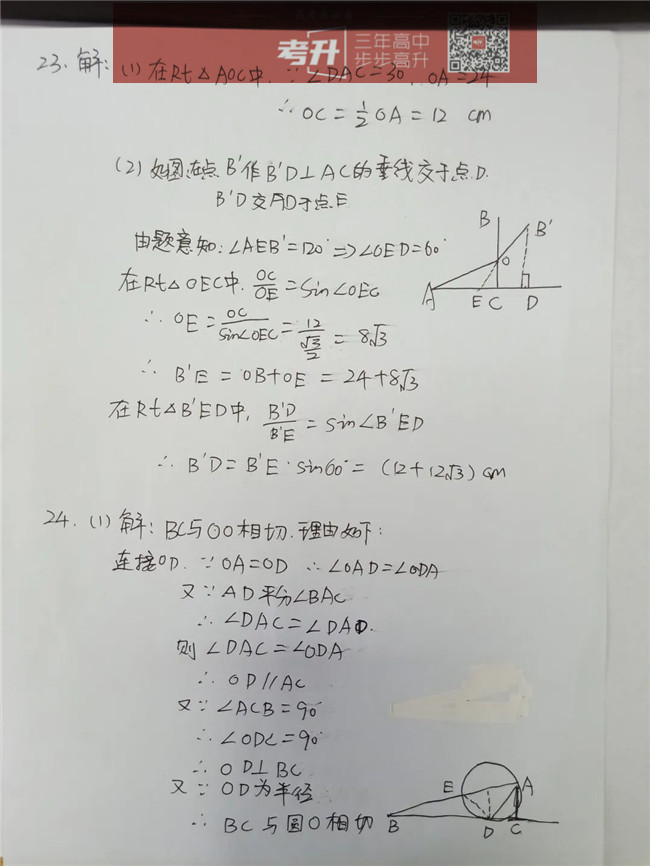 考升 三年高中
步步高升
23. 解: (1) 在Rt△AOC中. ∵∠DAC=30, OA=24
∴ OC=½OA=12 cm
(2) 如图,在点B'作B'D⊥AC的垂线交于点D.
B'D交AD于点E
由题意知:∠AEB'=120°⇒∠OED=60°
在Rt△OEC中. OC/OE=sin∠OEC
∴ OE=OC/sin∠OEC=12/(√3/2)=8√3
∴ B'E=OB+OE=24+8√3
在Rt△B'ED中, B'D/B'E=sin∠B'ED
∴ B'D=B'E·sin60°=(12+12√3)cm
B
B'
O
A
E C D
24. (1) 解: BC与⊙O相切.理由如下:
连接OD. ∵OA=OD ∴∠OAD=∠ODA
又∵AD平分∠BAC
∴∠DAC=∠DAO.
则∠DAC=∠ODA
∴ OD//AC
又∵∠ACB=90°
∴∠ODC=90°
∴ OD⊥BC
又∵OD为半径
∴ BC与圆O相切
E A
B D C